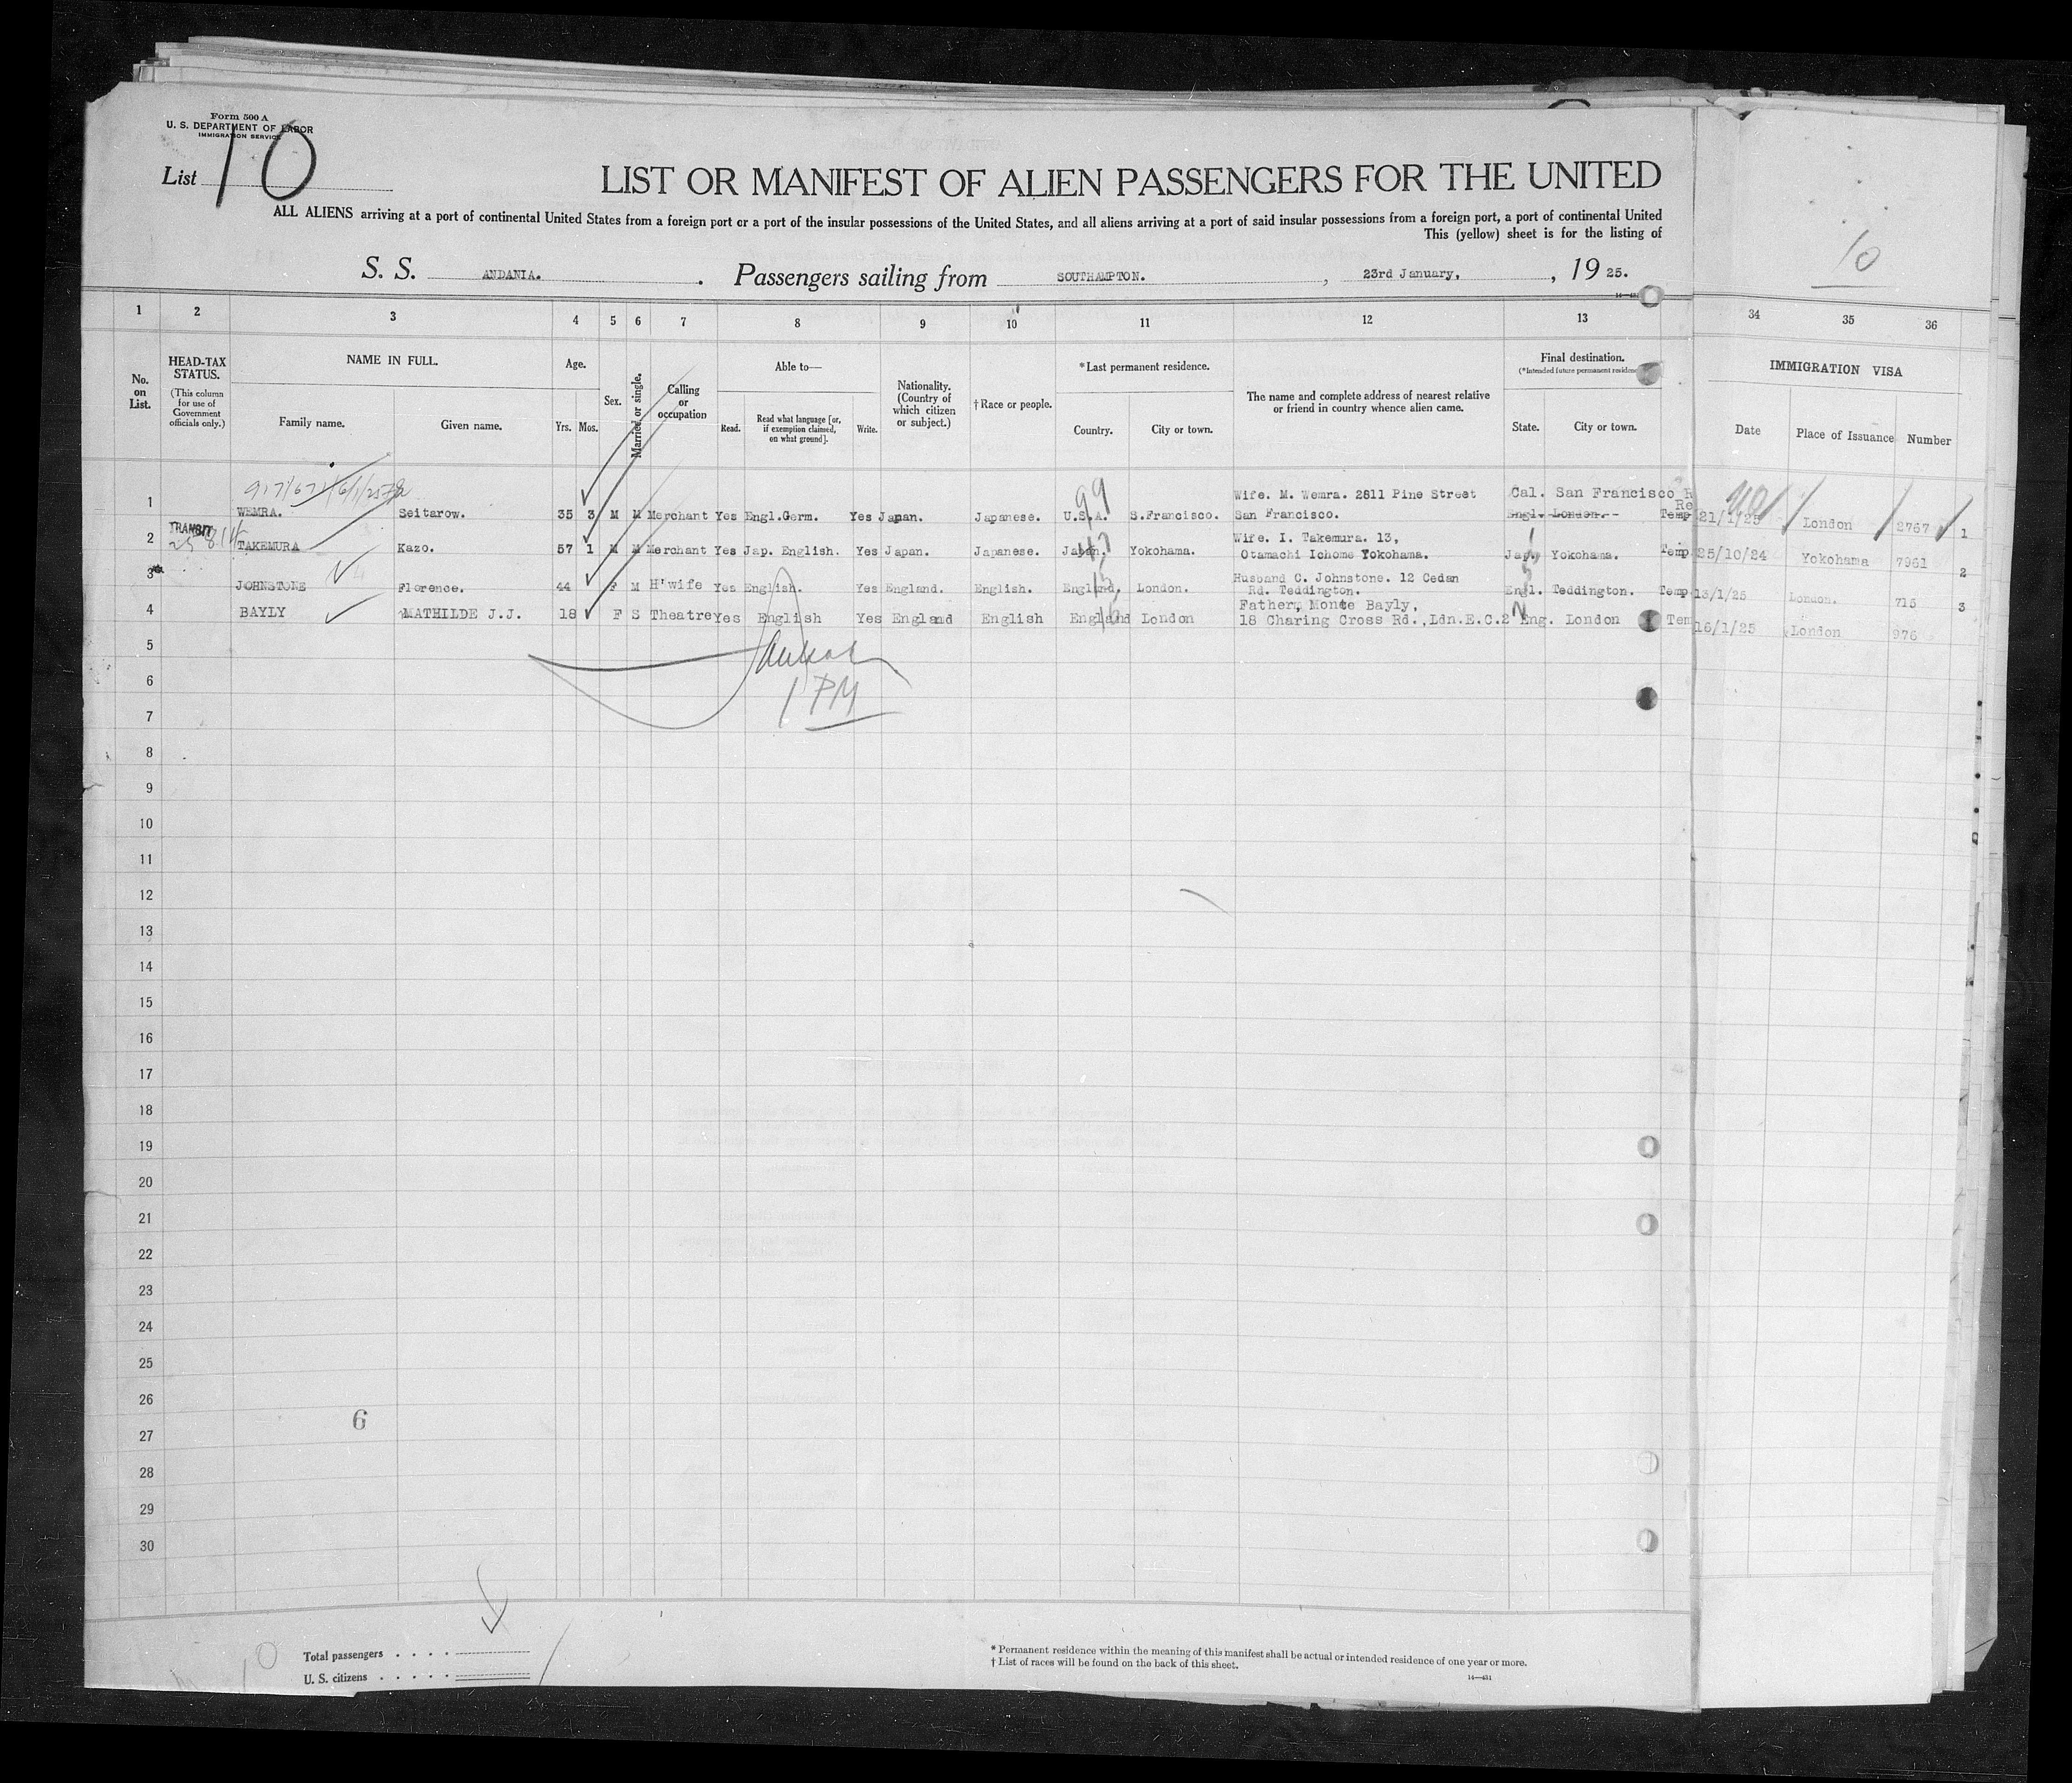 Form 500 A
U. S. DEPARTMENT OF LABOR
IMMIGRATION SERVICE
List 10
LIST OR MANIFEST OF ALIEN PASSENGERS FOR THE UNITED
ALL ALIENS arriving at a port of continental United States from a foreign port or a port of the insular possessions of the United States, and all aliens arriving at a port of said insular possessions from a foreign port, a port of continental United
This (yellow) sheet is for the listing of
10
S. S. ANDANIA. . Passengers sailing from SOUTHAMPTON. , 23rd January, , 19 25.
1 2 3 4 5 6 7 8 9 10 11 12 13 34 35 36
No. on List.
HEAD-TAX STATUS.
(This column for use of Government officials only.)
NAME IN FULL.
Family name. Given name.
Age.
Yrs. Mos.
Sex.
Married or single.
Calling or occupation
Able to—
Read. Read what language [or, if exemption claimed, on what ground]. Write.
Nationality. (Country of which citizen or subject.)
†Race or people.
*Last permanent residence.
Country. City or town.
The name and complete address of nearest relative or friend in country whence alien came.
Final destination.
(*Intended future permanent residence
State. City or town.
IMMIGRATION VISA
Date Place of Issuance Number
Wife. M. Wemra. 2811 Pine Street Cal. San Francisco R
1 WEMRA. Seitarow. 35 3 M M Merchant Yes Engl.Germ. Yes Japan. Japanese. U.S.A. S.Francisco. San Francisco. Engl. London. Temp 21/1/25 London 2767 1
99
TRANSIT
Wife. I. Takemura. 13,
2 TAKEMURA Kazo. 57 1 M M Merchant Yes Jap. English. Yes Japan. Japanese. Japan. Yokohama. Otamachi Ichome Yokohama. Jap. Yokohama. Temp. 25/10/24 Yokohama 7961 2
Husband C. Johnstone. 12 Cedan
3 JOHNSTONE Florence. 44 F M H'wife Yes English. Yes England. English. England. London. Rd. Teddington. Engl. Teddington. Temp. 13/1/25 London. 715 3
Father, Monte Bayly,
4 BAYLY MATHILDE J.J. 18 F S Theatre Yes English Yes England English England London 18 Charing Cross Rd.,Ldn.E.C.2 Eng. London Tem 16/1/25 London 976
5
1 PM
6
7
8
9
10
11
12
13
14
15
16
17
18
19
20
21
22
23
24
25
26
6
27
28
29
30
Total passengers . . . .
U. S. citizens . . . . .
* Permanent residence within the meaning of this manifest shall be actual or intended residence of one year or more.
† List of races will be found on the back of this sheet.
14—431